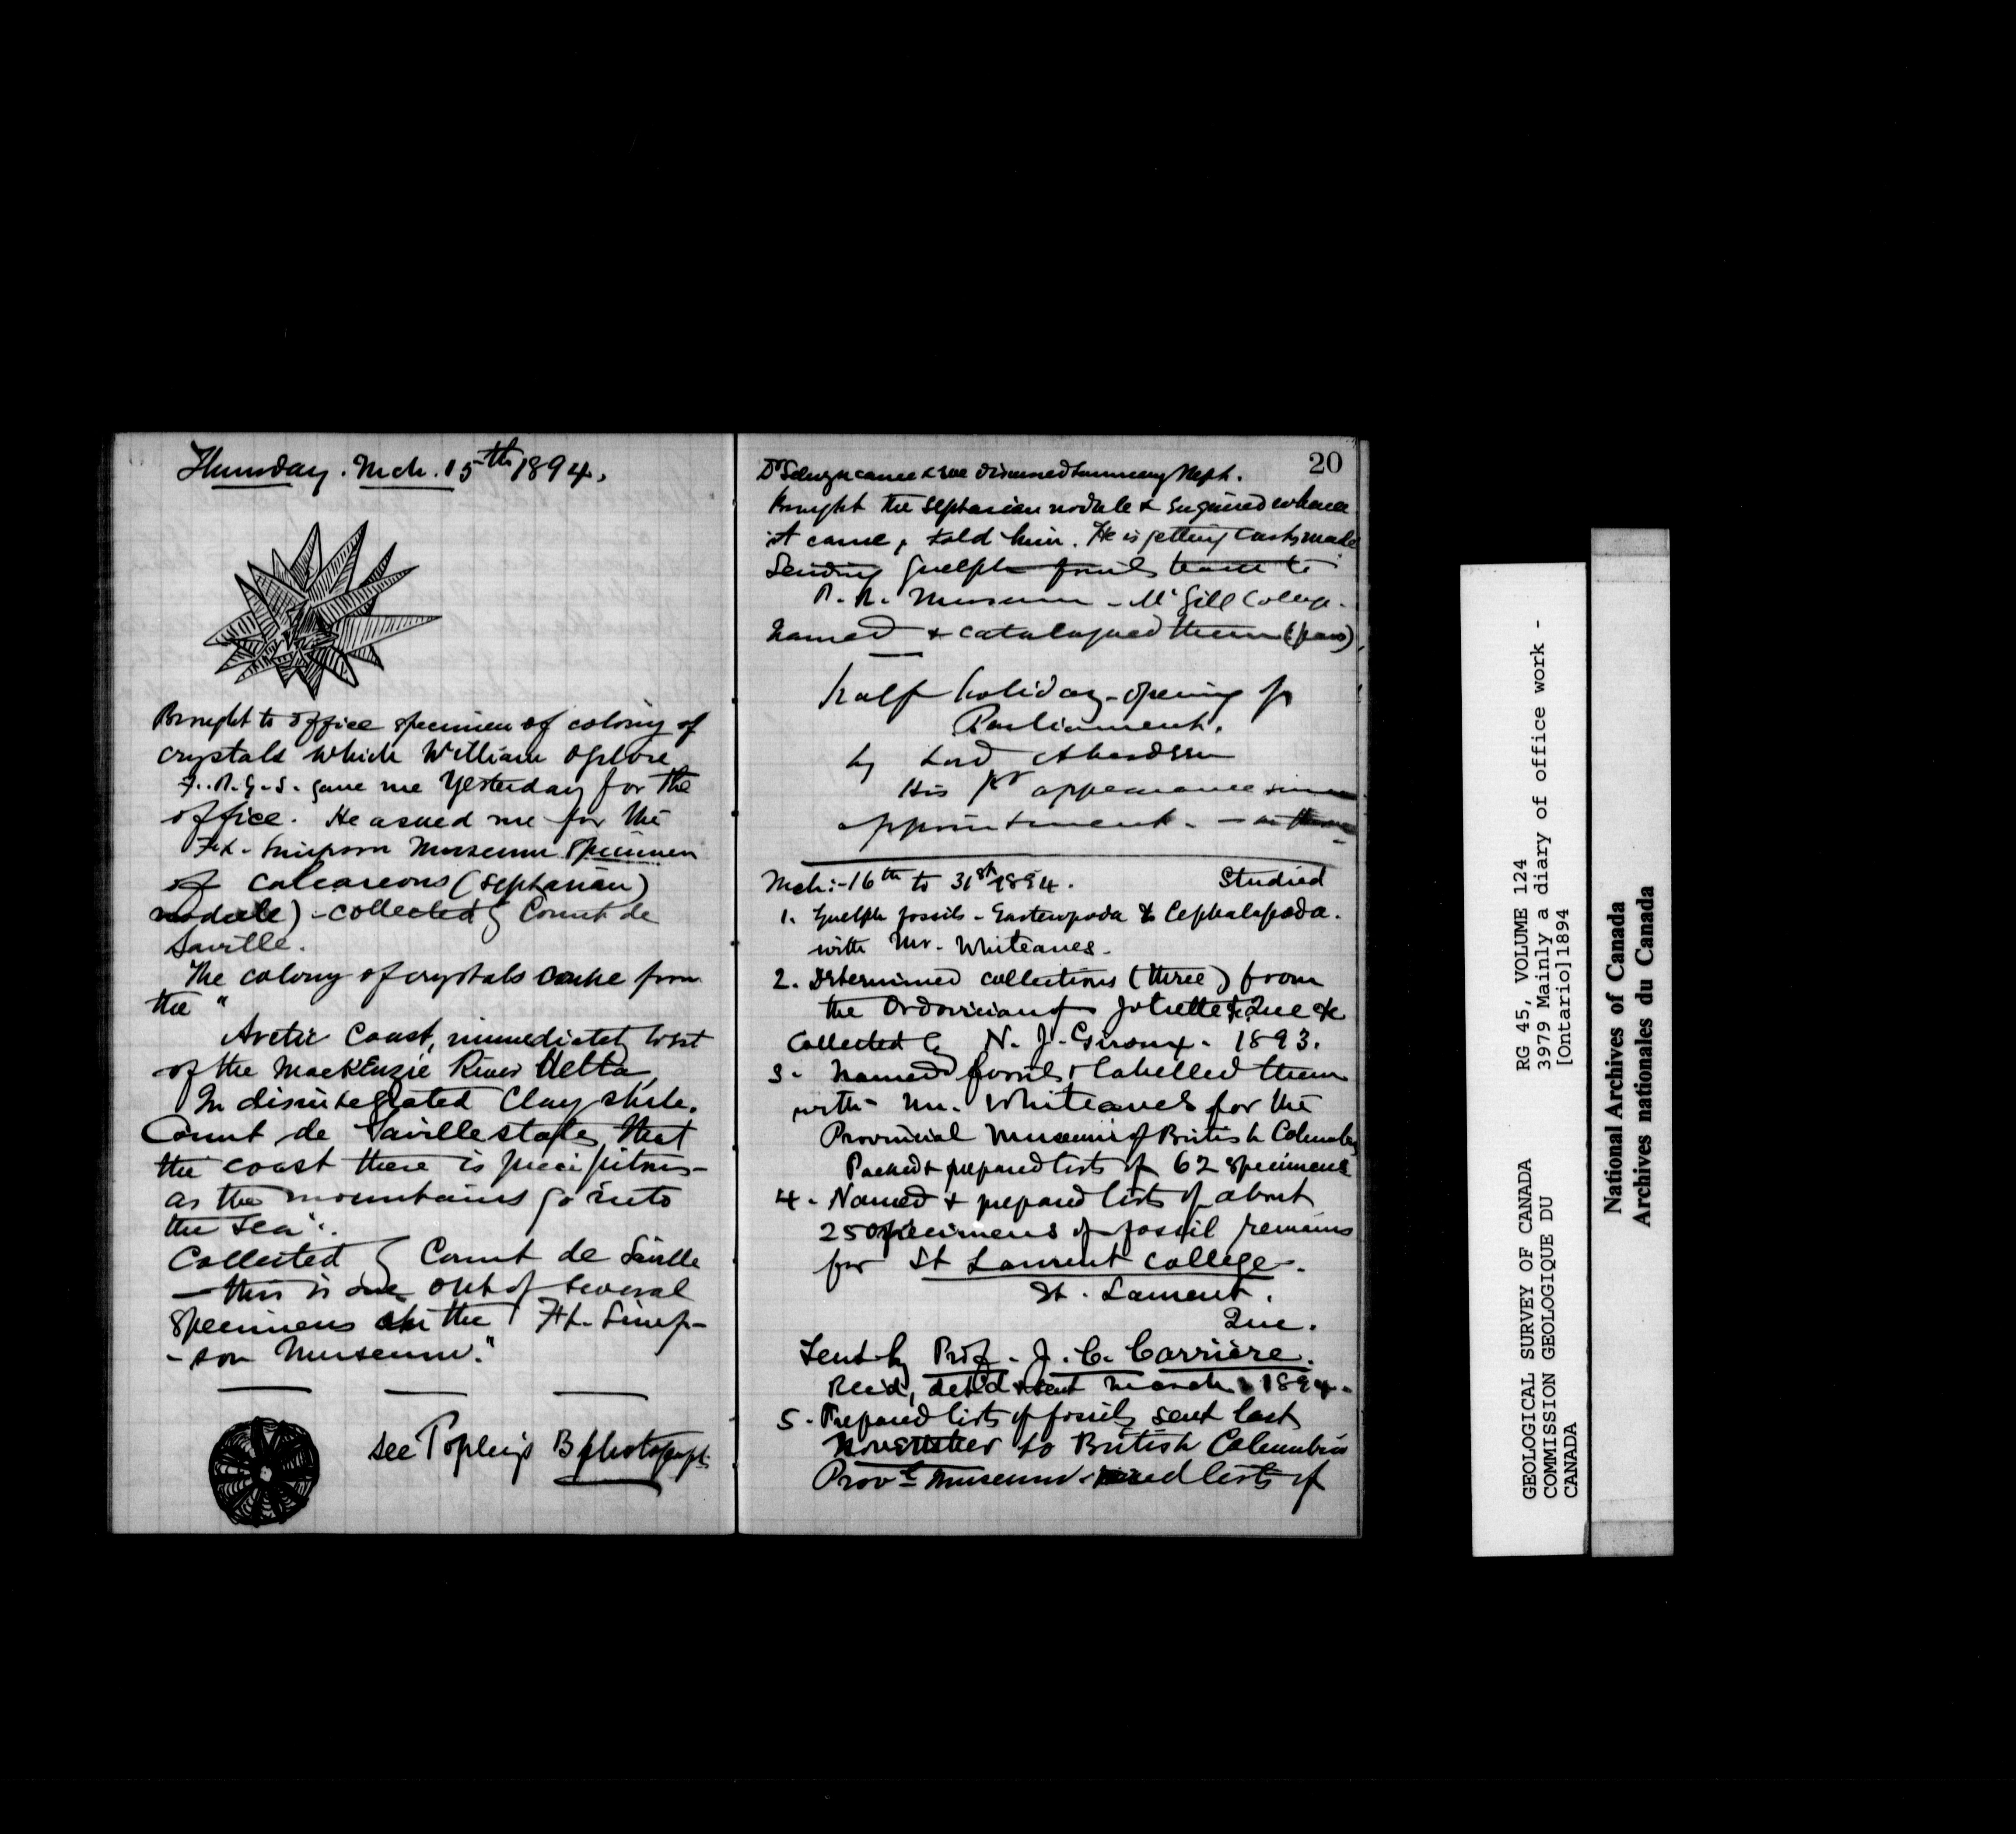 Thursday. Mch. 15th 1894.
Brought to office specimen of colony of
crystals which William Ogilvie
F.R.G.S. gave me yesterday for the
office. He asked me for the
Ft. Simpson Museum specimen
of calcareous (septarian)
nodule) - collected by Count de
Saville.
The colony of crystals came from
the "
Arctic Coast, immediately west
of the MacKenzie River Delta
In disintegrated Clay shale.
Count de Saville states that
the coast there is precipitous -
as the mountains go into
the sea".
Collected by Count de Saville
- this is one out of several
specimens in the Ft. Simp-
- son Museum."
see Topley's B photograph
20
Dr Selwyn came & we discussed Summary Reph.
Brought the septarian nodule & enquired whence
it came, told him. He is getting casts made
Sending Guelph fossils to
P. R. Museum - McGill College.
Named & catalogued them
half holiday - opening of
Parliament.
by Lord Aberdeen
His 1st appearance since
appointment. -
Mch:- 16th to 31st 1894. Studied
1. Guelph fossils - Gasteropoda & Cephalopoda.
with Mr. Whiteaves.
2. Determined collections (three) from
the Ordovician of Joliette Que &c
Collected by N. J. Giroux. 1893.
3. Named fossils & labelled them
with Mr. Whiteaves for the
Provincial Museum of British Columbia
Packed & prepared lists of 62 specimens
4. Named & prepared lists of about
250 specimens of fossil remains
for St Laurent College.
St. Laurent.
Que.
Sent by Prof. J. C. Carrière.
Rec'd, det'd & sent March 1894.
5. Prepared lists of fossils sent last
November to British Columbia
Provl. Museum. lists of
GEOLOGICAL SURVEY OF CANADA
COMMISSION GEOLOGIQUE DU
CANADA
RG 45, VOLUME 124
3979 Mainly a diary of office work -
[Ontario]1894
National Archives of Canada
Archives nationales du Canada